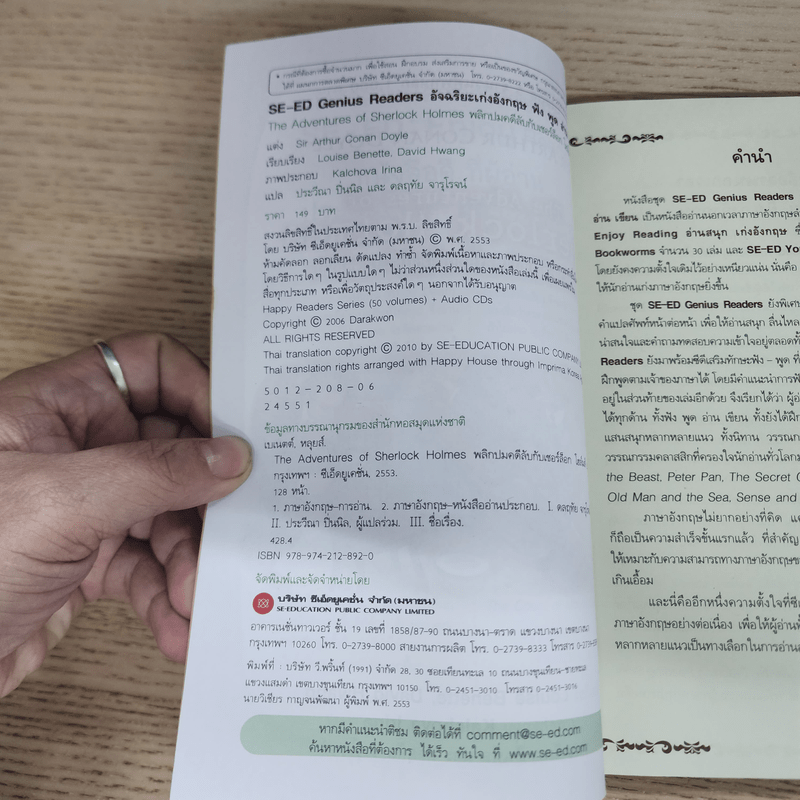 • กรณีที่ต้องการซื้อจำนวนมาก เพื่อใช้สอน ฝึกอบรม ส่งเสริมการขาย หรือเป็นของขวัญพิเศษ
ได้ที่ แผนกการตลาดพิเศษ บริษัท ซีเอ็ดยูเคชั่น จำกัด (มหาชน) โทร. 0-2739-8222 หรือ โทรสาร
SE-ED Genius Readers อัจฉริยะเก่งอังกฤษ ฟัง พูด
The Adventures of Sherlock Holmes พลิกปมคดีลับกับเชอร์ล็อก
แต่ง Sir Arthur Conan Doyle
เรียบเรียง Louise Benette, David Hwang
ภาพประกอบ Kalchova Irina
แปล ประวีณา ปิ่นนิล และ ดลฤทัย จารุโรจน์
ราคา 149 บาท
สงวนลิขสิทธิ์ในประเทศไทยตาม พ.ร.บ. ลิขสิทธิ์
โดย บริษัท ซีเอ็ดยูเคชั่น จำกัด (มหาชน) © พ.ศ. 2553
ห้ามคัดลอก ลอกเลียน ดัดแปลง ทำซ้ำ จัดพิมพ์เนื้อหาและภาพประกอบ หรือกระทำ
โดยวิธีการใดๆ ในรูปแบบใดๆ ไม่ว่าส่วนหนึ่งส่วนใดของหนังสือเล่มนี้ เพื่อเผยแพร่ใน
สื่อทุกประเภท หรือเพื่อวัตถุประสงค์ใดๆ นอกจากได้รับอนุญาต
Happy Readers Series (50 volumes) + Audio CDs
Copyright © 2006 Darakwon
ALL RIGHTS RESERVED
Thai translation copyright © 2010 by SE-EDUCATION PUBLIC COMPANY
Thai translation rights arranged with Happy House through Imprima Korea
5012-208-06
24551
ข้อมูลทางบรรณานุกรมของสำนักหอสมุดแห่งชาติ
เบเนตต์, หลุยส์.
The Adventures of Sherlock Holmes พลิกปมคดีลับกับเชอร์ล็อก
กรุงเทพฯ : ซีเอ็ดยูเคชั่น, 2553.
128 หน้า.
1. ภาษาอังกฤษ-การอ่าน. 2. ภาษาอังกฤษ-หนังสืออ่านประกอบ. I. ดลฤทัย
II. ประวีณา ปิ่นนิล, ผู้แปลร่วม. III. ชื่อเรื่อง.
428.4
ISBN 978-974-212-892-0
จัดพิมพ์และจัดจำหน่ายโดย
บริษัท ซีเอ็ดยูเคชั่น จำกัด (มหาชน)
SE-EDUCATION PUBLIC COMPANY LIMITED
อาคารเนชั่นทาวเวอร์ ชั้น 19 เลขที่ 1858/87-90 ถนนบางนา-ตราด แขวงบางนา เขตบางนา
กรุงเทพฯ 10260 โทร. 0-2739-8000 สายงานการผลิต โทร. 0-2739-8333 โทรสาร
พิมพ์ที่ : บริษัท วี.พริ้นท์ (1991) จำกัด 28, 30 ซอยเทียนทะเล 10 ถนนบางขุนเทียน-ชายทะเล
แขวงแสมดำ เขตบางขุนเทียน กรุงเทพฯ 10150 โทร. 0-2451-3010 โทรสาร 0-2451-3016
นายวิเชียร กาญจนพัฒนา ผู้พิมพ์ พ.ศ. 2553
หากมีคำแนะนำติชม ติดต่อได้ที่ comment@se-ed.com
ค้นหาหนังสือที่ต้องการ ได้เร็ว ทันใจ ที่ www.se-ed.com
คำนำ
หนังสือชุด SE-ED Genius Readers
อ่าน เขียน เป็นหนังสืออ่านนอกเวลาภาษาอังกฤษ
Enjoy Reading อ่านสนุก เก่งอังกฤษ
Bookworms จำนวน 30 เล่ม และ SE-ED
โดยยังคงความตั้งใจเดิมไว้อย่างเหนียวแน่น นั่นคือ
ให้นักอ่านเก่งภาษาอังกฤษยิ่งขึ้น
ชุด SE-ED Genius Readers ยังพิเศษ
คำแปลศัพท์หน้าต่อหน้า เพื่อให้อ่านสนุก ลื่นไหล
น่าสนใจและคำถามทดสอบความเข้าใจอยู่ตลอด
Readers ยังมาพร้อมซีดีเสริมทักษะฟัง - พูด
ฝึกพูดตามเจ้าของภาษาได้ โดยมีคำแนะนำการฟัง
อยู่ในส่วนท้ายของเล่มอีกด้วย จึงเรียกได้ว่า
ได้ทุกด้าน ทั้งฟัง พูด อ่าน เขียน ทั้งยังได้
แสนสนุกหลากหลายแนว ทั้งนิทาน
วรรณกรรมคลาสสิกที่ครองใจนักอ่านทั่วโลก
the Beast, Peter Pan, The Secret
Old Man and the Sea, Sense and
ภาษาอังกฤษไม่ยากอย่างที่คิด
ก็ถือเป็นความสำเร็จขั้นแรกแล้ว ที่สำคัญ
ให้เหมาะกับความสามารถทางภาษาอังกฤษ
เกินเอื้อม
และนี่คืออีกหนึ่งความตั้งใจที่
ภาษาอังกฤษอย่างต่อเนื่อง เพื่อให้ผู้อ่าน
หลากหลายแนวเป็นทางเลือกในการอ่าน